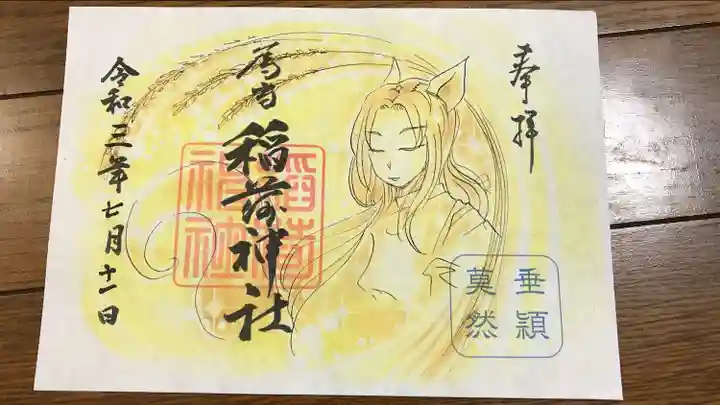 奉拝
稲荷神社
稲荷
神社
令和三年七月十一日
垂穎
莫然